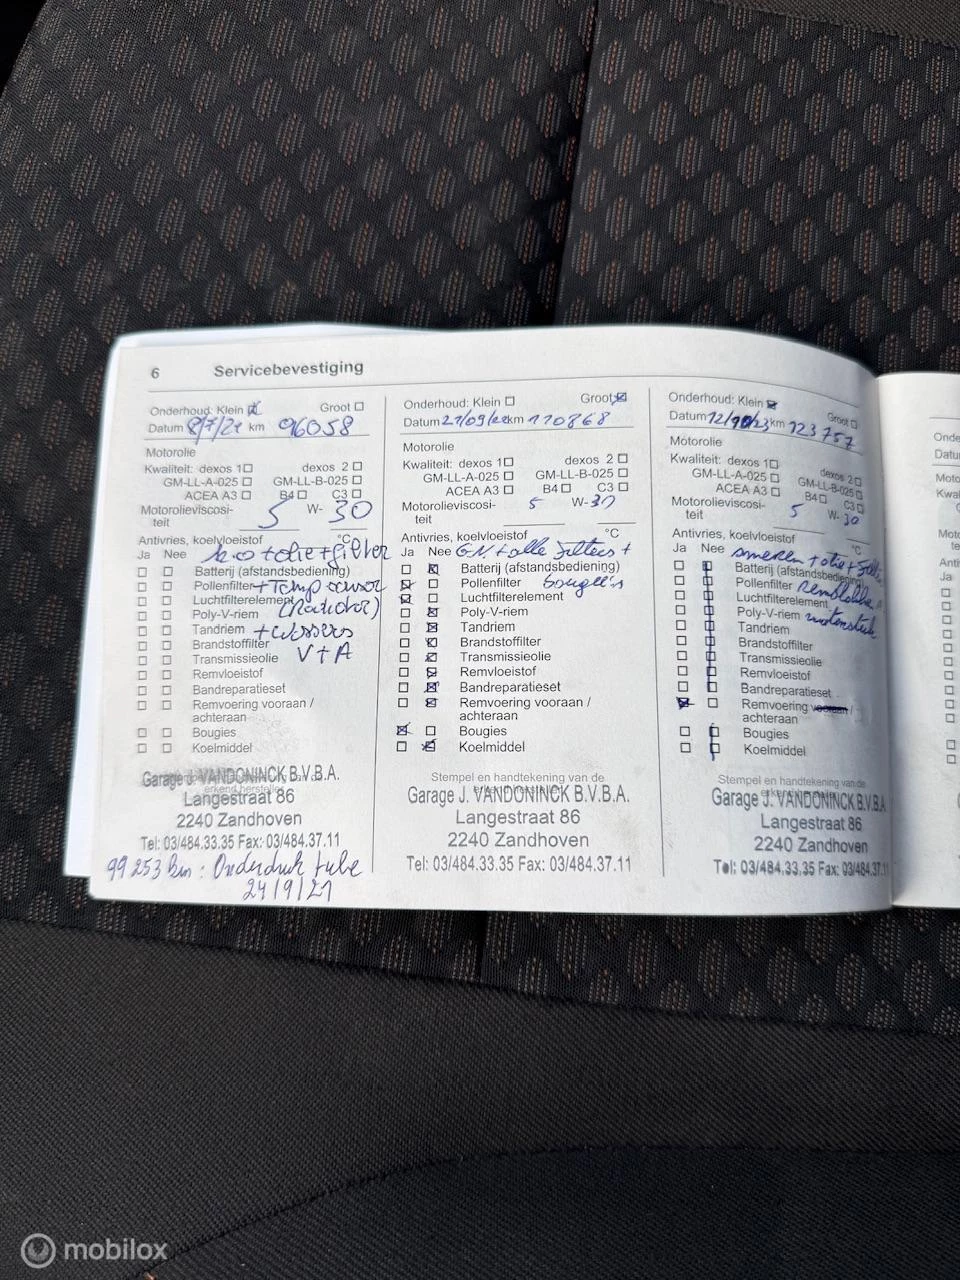 6 Servicebevestiging
Onderhoud: Klein Groot
Datum 8/7/21 km 96058
Motorolie
Kwaliteit: dexos 1 dexos 2
GM-LL-A-025 GM-LL-B-025
ACEA A3 B4 C3
Motorolieviscosi-
teit 5 W- 30
Antivries, koelvloeistof °C
Ja Nee + olie + filter
Batterij (afstandsbediening)
Pollenfilter + Temp sensor
Luchtfilterelement (Radiator)
Poly-V-riem
Tandriem + wissers
Brandstoffilter V + A
Transmissieolie
Remvloeistof
Bandreparatieset
Remvoering vooraan /
achteraan
Bougies
Koelmiddel
erkend hersteller
Garage J. VANDONINCK B.V.B.A.
Langestraat 86
2240 Zandhoven
Tel: 03/484.33.35 Fax: 03/484.37.11
99253 km : Onderdruk tube
24/9/21
Onderhoud: Klein Groot
Datum 21/09/22 km 110868
Motorolie
Kwaliteit: dexos 1 dexos 2
GM-LL-A-025 GM-LL-B-025
ACEA A3 B4 C3
Motorolieviscosi-
teit 5 W- 30
Antivries, koelvloeistof °C
Ja Nee GN + alle filters +
Batterij (afstandsbediening)
Pollenfilter bougie's
Luchtfilterelement
Poly-V-riem
Tandriem
Brandstoffilter
Transmissieolie
Remvloeistof
Bandreparatieset
Remvoering vooraan /
achteraan
Bougies
Koelmiddel
Stempel en handtekening van de
erkend hersteller
Garage J. VANDONINCK B.V.B.A.
Langestraat 86
2240 Zandhoven
Tel: 03/484.33.35 Fax: 03/484.37.11
Onderhoud: Klein Groot
Datum 12/10/23 km 123757
Motorolie
Kwaliteit: dexos 1 dexos 2
GM-LL-A-025 GM-LL-B-025
ACEA A3 B4 C3
Motorolieviscosi-
teit 5 W- 30
Antivries, koelvloeistof °C
Ja Nee smeren + olie +
Batterij (afstandsbediening)
Pollenfilter Remblokken
Luchtfilterelement
Poly-V-riem
Tandriem
Brandstoffilter
Transmissieolie
Remvloeistof
Bandreparatieset
Remvoering vooraan /
achteraan
Bougies
Koelmiddel
Stempel en handtekening van de
erkend hersteller
Garage J. VANDONINCK B.V.B.A
Langestraat 86
2240 Zandhoven
Tel: 03/484.33.35 Fax: 03/484.37.11
Onde
Datu
Moto
Kwal
Anti
Ja
mobilox